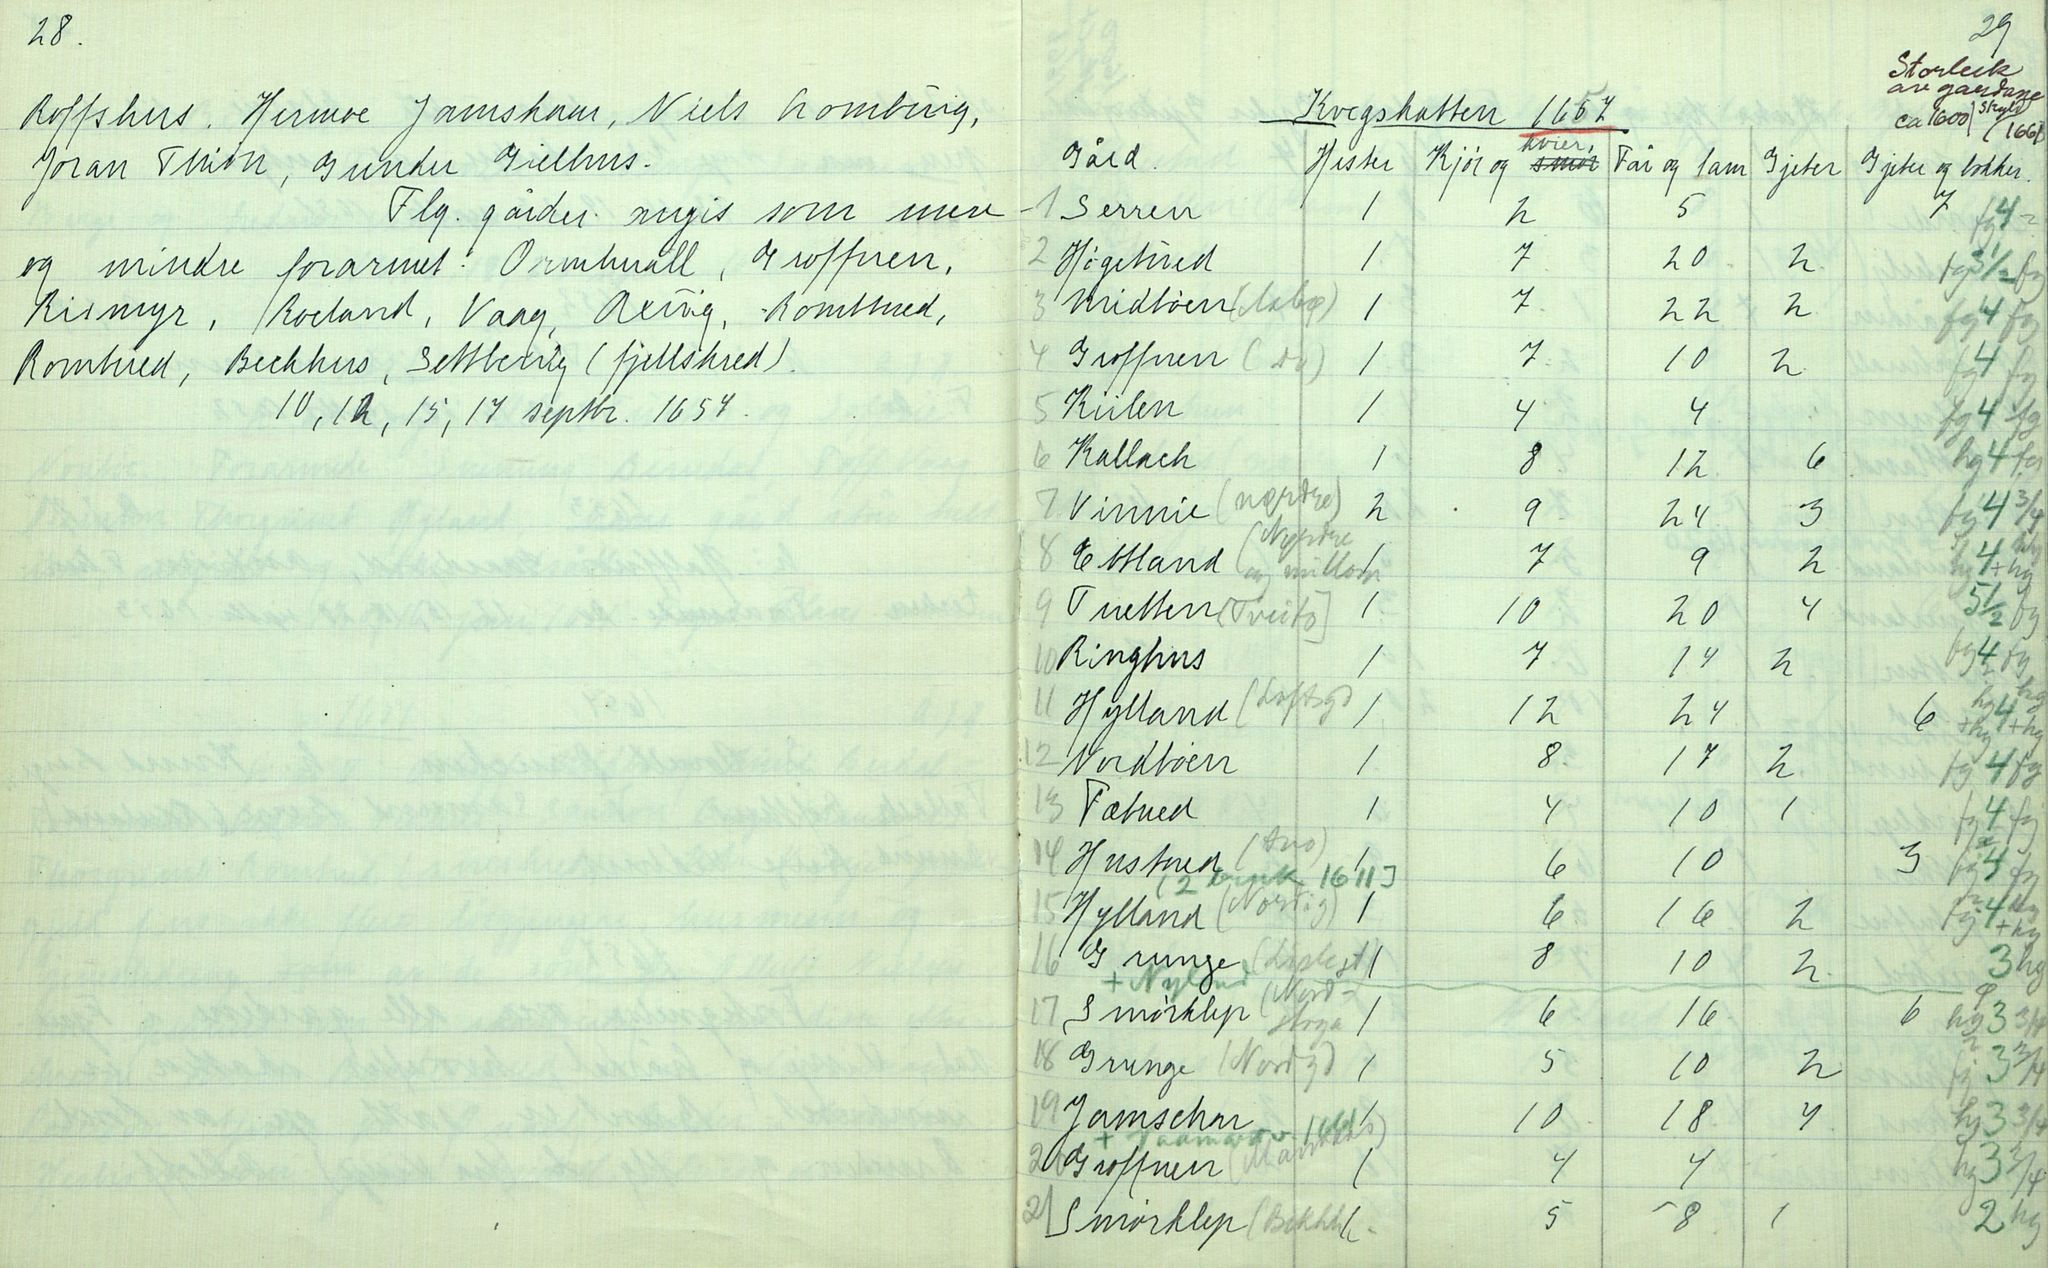 28.
Roffshus. Hermoe Jamskaar, Niels Romburig,
Joran Thiön, Gunder Gielhus.
Flg. gårder angis som mere
og mindre forarmet: Ormbrull, Groffuen,
Rismyr, Roeland, Vaag, Bexvig, Rombtued,
Romtued, Beckhus, Settberrig (fjellskred).
10, 12, 15, 17 septbr. 1657.
29
Storleik
av gardane
ca 1600 (Skyld
(1661)
Kvegskatten 1657
Gård. Hester Kjör og kvier, smör Får og lam Gjeter Gjeter og bokker.
1 Serren 1 2 5 7 fg 4
2 Högetued 1 7 20 2 fg 3 1/2 fg
3 Midböen 1 7 22 2 fg 4 fg
4 Groffuen (do) 1 7 10 2 fg 4 fg
5 Kiilen 1 4 4 fg 4 fg
6 Kallach 1 8 12 6 hg 4 fg
7 Vinnie (nördre) 2 9 24 3 fg 4 3/4
8 Ettland (Nyrdre og millom 1 7 9 2 hg 4 + hg
9 Tuetten [Tveito] 1 10 20 4 5 1/2 fg
10 Ringhus 1 7 14 2 fg 4 fg
11 Hylland (Loftsgd 1 12 24 6 hg + hg 4 hg + hg
12 Nordböen 1 8 17 2 fg 4 fg
13 Fætued 1 4 10 1 fg 4 fg
14 Hustued 1 6 10 3 fg 4 fg
(2 bruk 1611)
15 Hylland (Nordig) 1 6 16 2 fg 4 + hg
16 Grunge 1 8 10 2 3 hg
+ Nyland
17 Smörklep (Nordstoga 1 6 16 6 hg 3 3/4
18 Grunge (Nordgd 1 5 10 2 fg 3 3/4
19 Jamschar 1 10 18 4 hg 3 3/4
20 Groffuen 1 4 4 hg 3 3/4
21 Smörklep (Bekkh 1 5 8 1 2 hg